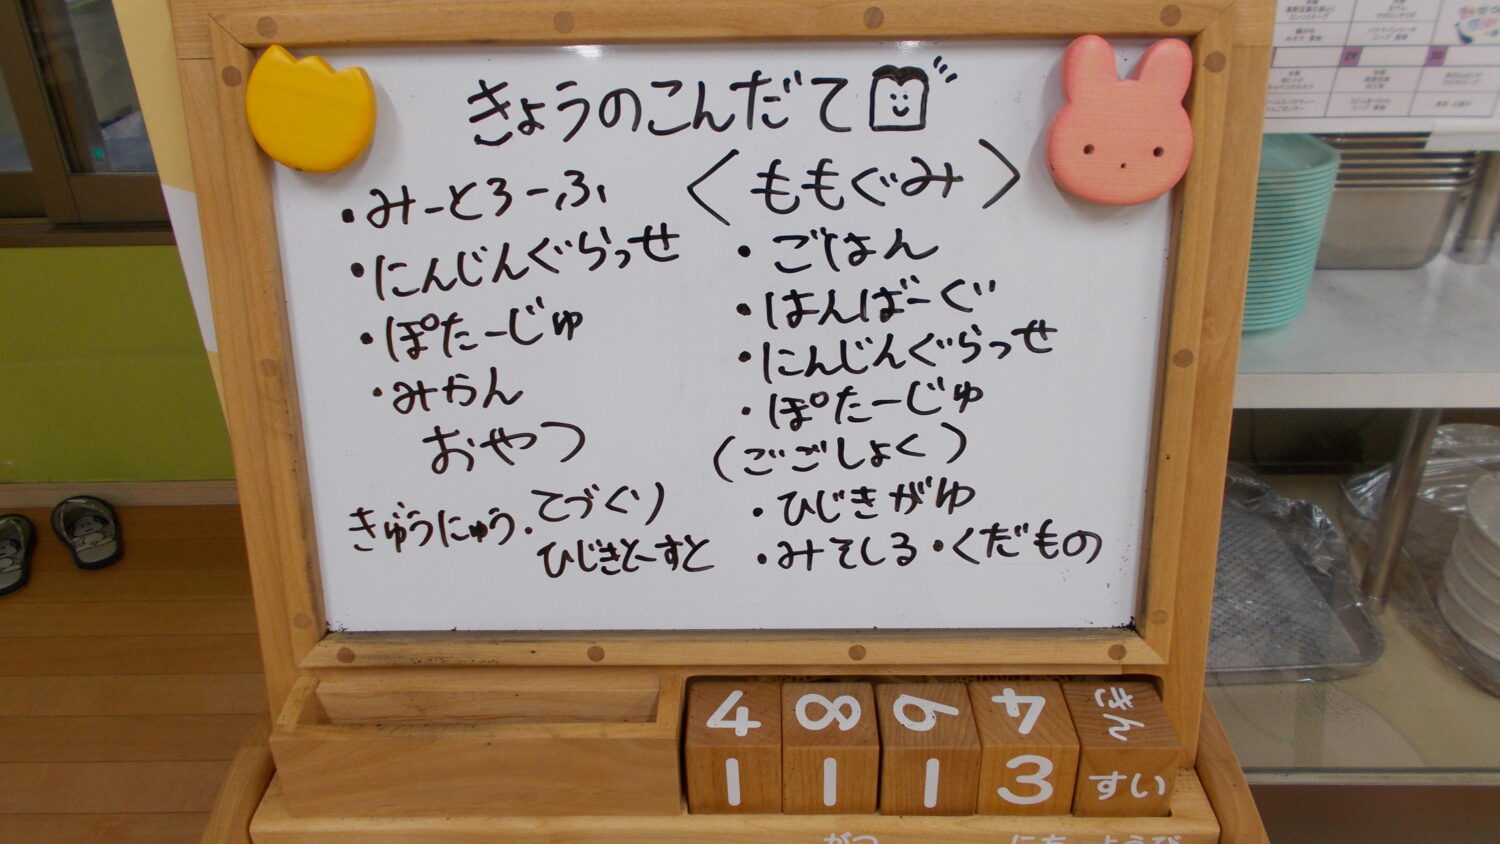 きょうのこんだて
・みーとろーふ
・にんじんぐらっせ
・ぽたーじゅ
・みかん
おやつ
ぎゅうにゅう・てづくり
ひじきとーすと
〈ももぐみ〉
・ごはん
・はんばーぐ
・にんじんぐらっせ
・ぽたーじゅ
(ごごしょく)
・ひじきがゆ
・みそしる・くだもの
4 8 6 4 きん
1 1 1 3 すい
がつ にち ようび
29 30